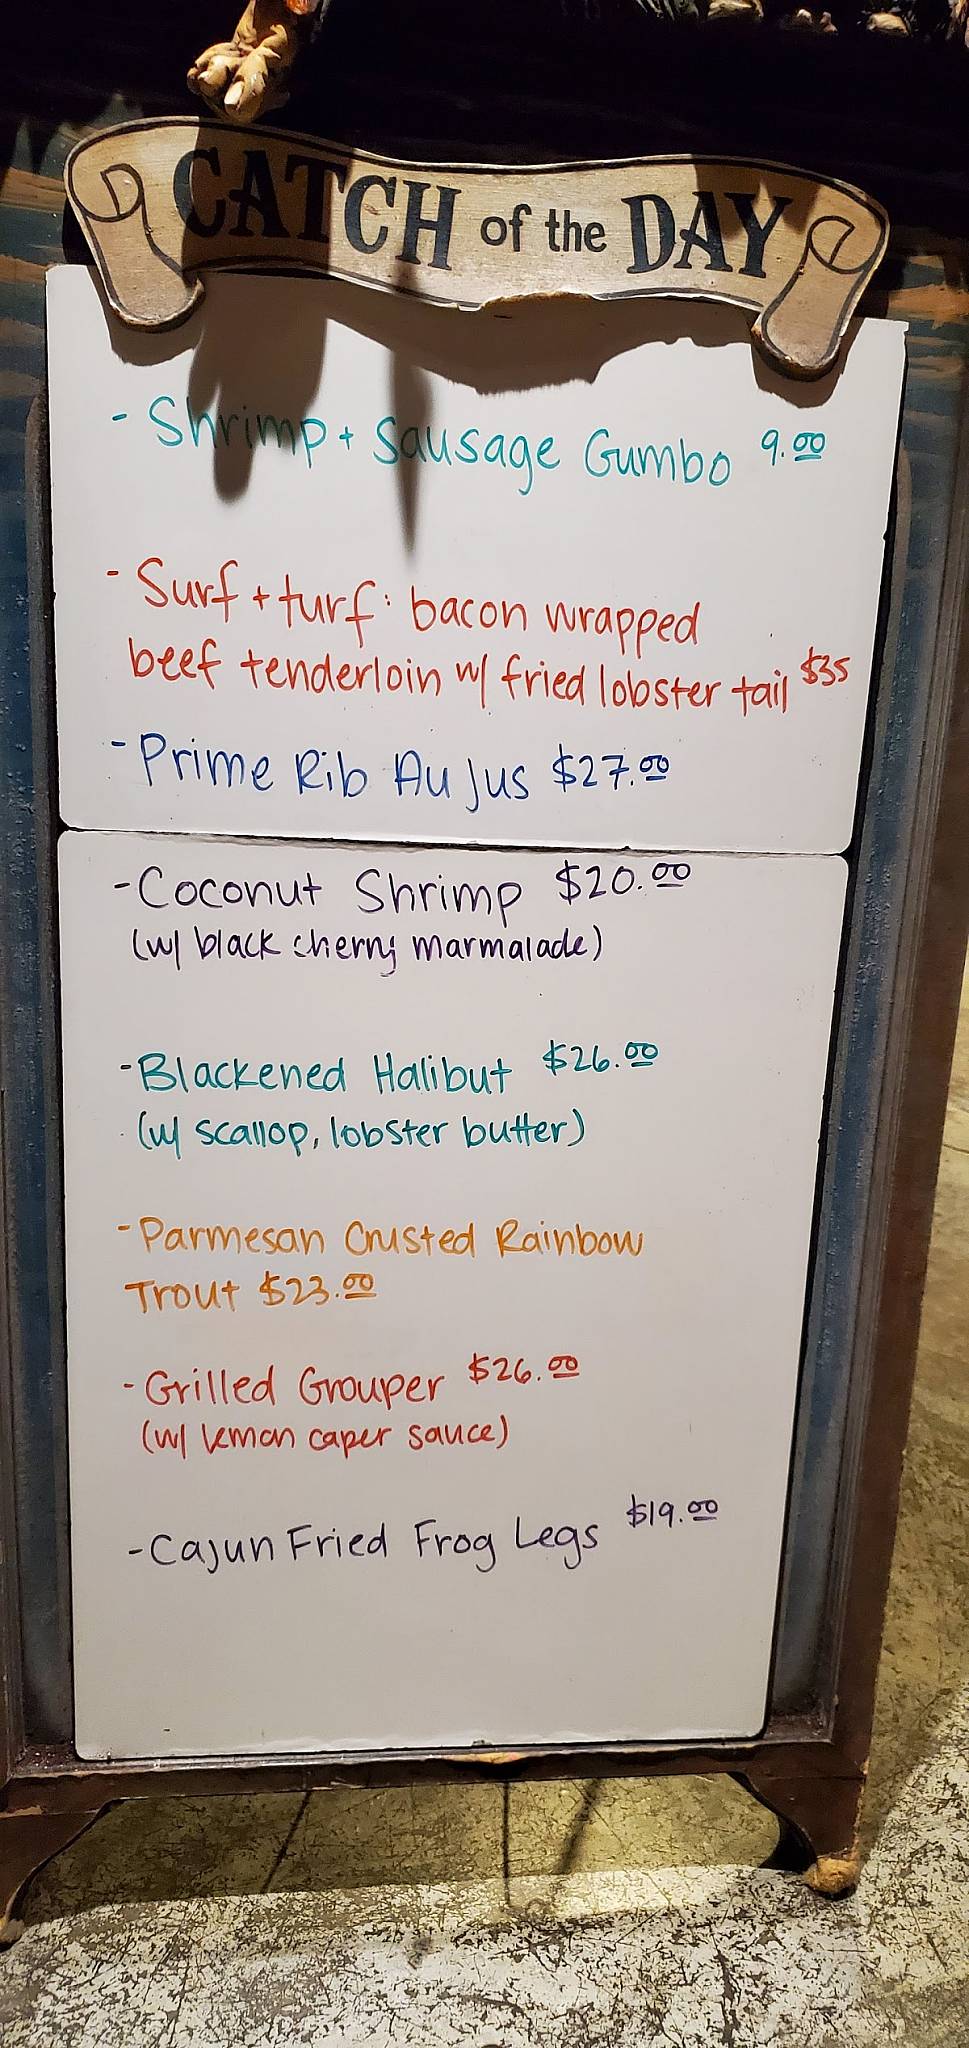 CATCH of the DAY
- Shrimp + Sausage Gumbo 9.00
- Surf + turf: bacon wrapped
beef tenderloin w/ fried lobster tail $35
- Prime Rib Au Jus $27.00
- Coconut Shrimp $20.00
(w/ black cherry marmalade)
- Blackened Halibut $26.00
(w/ scallop, lobster butter)
- Parmesan Crusted Rainbow
Trout $23.00
- Grilled Grouper $26.00
(w/ lemon caper sauce)
- Cajun Fried Frog Legs $19.00